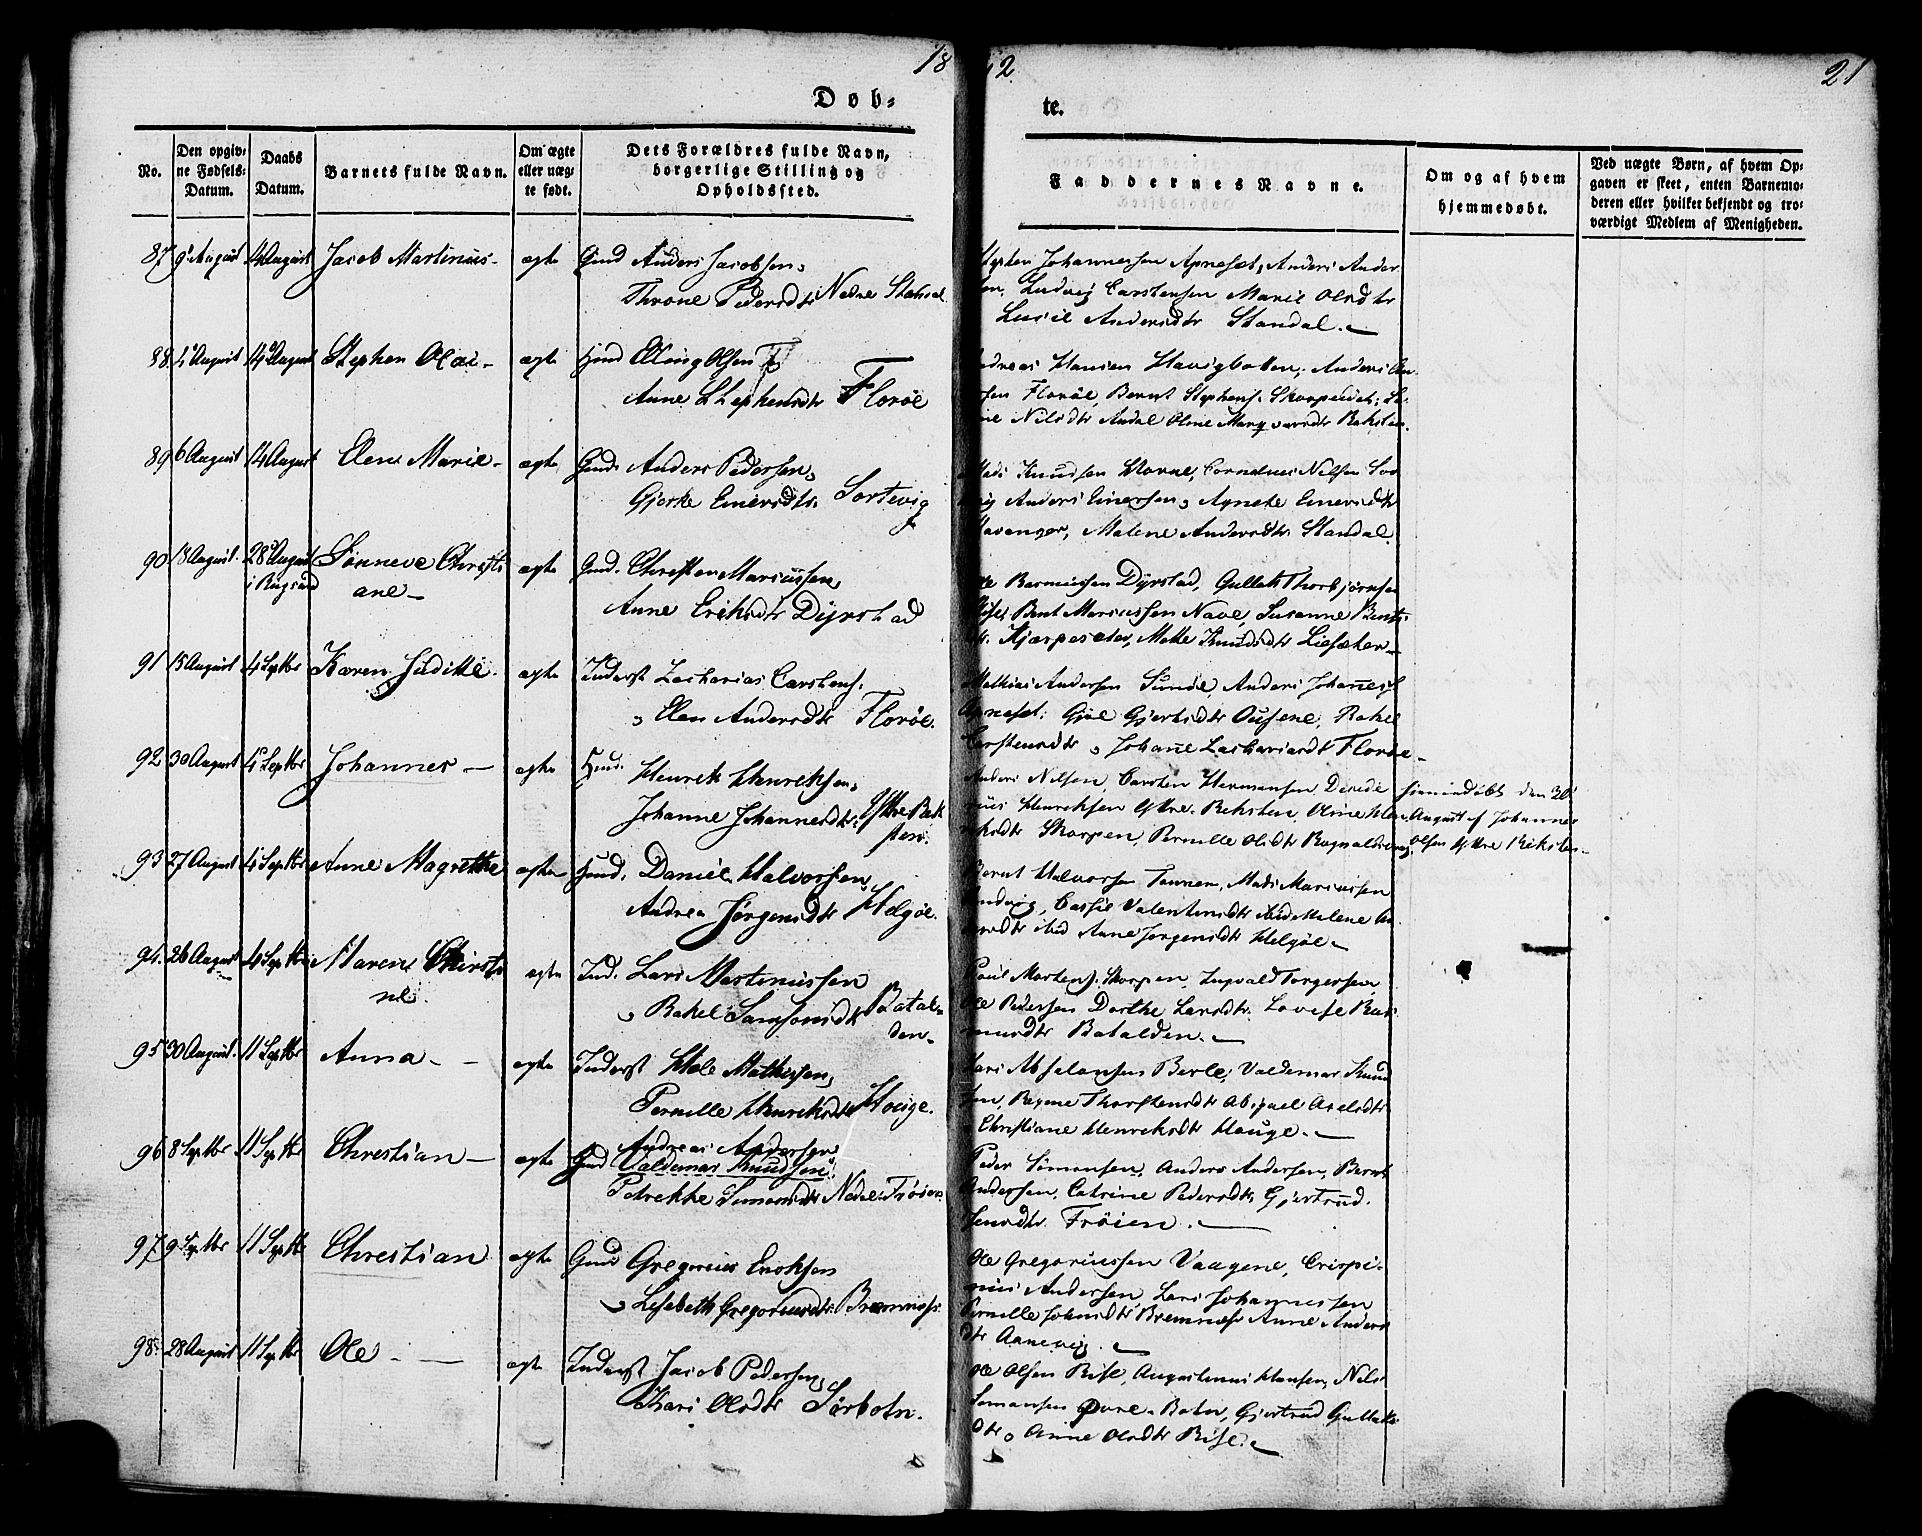 18
42
21
Døb-
te.
No.
Den opgiv-
ne Fødsels-
Datum.
Daabs
Datum.
Barnets fulde Navn.
Om ægte
eller uæg-
te født.
Dets Forældres fulde Navn,
borgerlige Stilling og
Opholdssted.
Faddernes Navne.
Om og af hvem
hjemmedøbt.
Ved uægte Børn, af hvem Op-
gaven er skeet, enten Barnemo-
deren eller hvilket bekjendt og tro-
værdigt Medlem af Menigheden.
87 9 August 14 August Jacob Martinius- ægte Gmd Anders Jacobsen,
Throne Pedersdtr Nedre Standal
Stephen Johannessen Apneset, Anders Ander-
sen, Ludvig Carstensen Marie Olsdtr
Lucie Andersdtr Standal.
88. 4 August 14 August Stephen Olai- ægte Elling Olsen
Anne Stephensdtr Florøe
Andreas Hansen Havigbotten, Anders
Florøe, Bernt Stephens.
Nilsdtr Andal Oline Reksten.
89 6 August 14 August Elene Marie- ægte Gmd Anders Pedersen,
Gjerke Einersdtr. Sortevig
Mads Knudsen Cornelius Nilsen
Anders Einersen, Agnete Einersdtr
Stavanger, Malene Andersdtr Standal.
90 18 August. 28 August Sønneve Christi
i Rugsund
ane- ægte Gmd. Christen Mariussen,
Anne Eriksdtr Dyrstad
Ole Rasmussen Dyrstad, Gullak Thorbjørnsen
Rise, Bent Mariussen Nave, Susanne Bents-
dtr. Mette Knudsdtr Liesæter-
91 15 August 4 Septbr Karen Juditte. ægte Inderst Zacharias Carstens.
Elen Andersdtr Florøe.
Mathias Andersen Sunde, Anders Johannes.
Apneset; Gjertsdtr Ousene, Rakel
Carstensdtr, Johane Zachariasdt Florøe-
92 30 August 4 Septbr Johannes- ægte Gmd. Henrik Henriksen,
Johanne Johannesdtr. Yttre Rek
sten.
Anders Nilsen, Carsten Hermansen,
Henriksen Yttre Reksten, Oline Hen-
riksdtr Skorpen, Pernille Olsdtr
hjemmedøbt den 30
August af Johannes
Olsen Yttre Reksten-
93 27 August 4 Septbr Anne Magrethe ægte Gmd. Daniel Halvorsen
Andrea Jørgensdtr Helgøe.
Bernt Halvorsen Mads Mariussen
Valentinsdtr Malene An-
dersdtr Anne Jørgensdtr Helgøe-
94. 26 August 4 Septbr Maren Christi
ne. ægte Ind. Lars Martinussen
Rakel Samsonsdtr Batal-
den-
Poul Mortens. Skorpen, Torgersen
Ole Pedersen Dorthe Larsdtr. Lovise Ras-
musdtr Batalden.
95 30 August. 11 Septbr Anna- ægte Inderst Mathissen,
Pernille Henriksdtr Houge.
Lars Absalonsen Berle, Valdemar Knud
sen, Regine Thorstensdtr Abigael Axelsdtr
Christiane Henriksdtr Houge.
96 8 Septbr 11 Septbr Christian- ægte Gmd Andreas Andersen
Valdemar Knudsen
Petrekke Simonsdtr Nedre Frøien.
Peder Simonsen, Anders Andersen, Bernt
Andersen, Catrine Pedersdtr, Gjertrud
Frøien.
97 9 Septbr 11 Septbr Christian ægte Gmd Gregorius Enoksen
Lisabeth Gregoriusdtr. Bremnæs.
Ole Gregoriussen Vaagene, Crispi-
nus Andersen, Lars Johannessen
Pernille Johnsdtr Bremnæs Anne Anders
dtr Aanevig.
98. 28 August 11 Septbr Ole ægte Inderst Jacob Pedersen,
Kari Olsdtr Sørbotn.
Ole Olsen Rise, Augustinus Hansen, Nils
Simonsen Botn, Gjertrud Gullaks
dtr, Anne Olsdtr Rise.